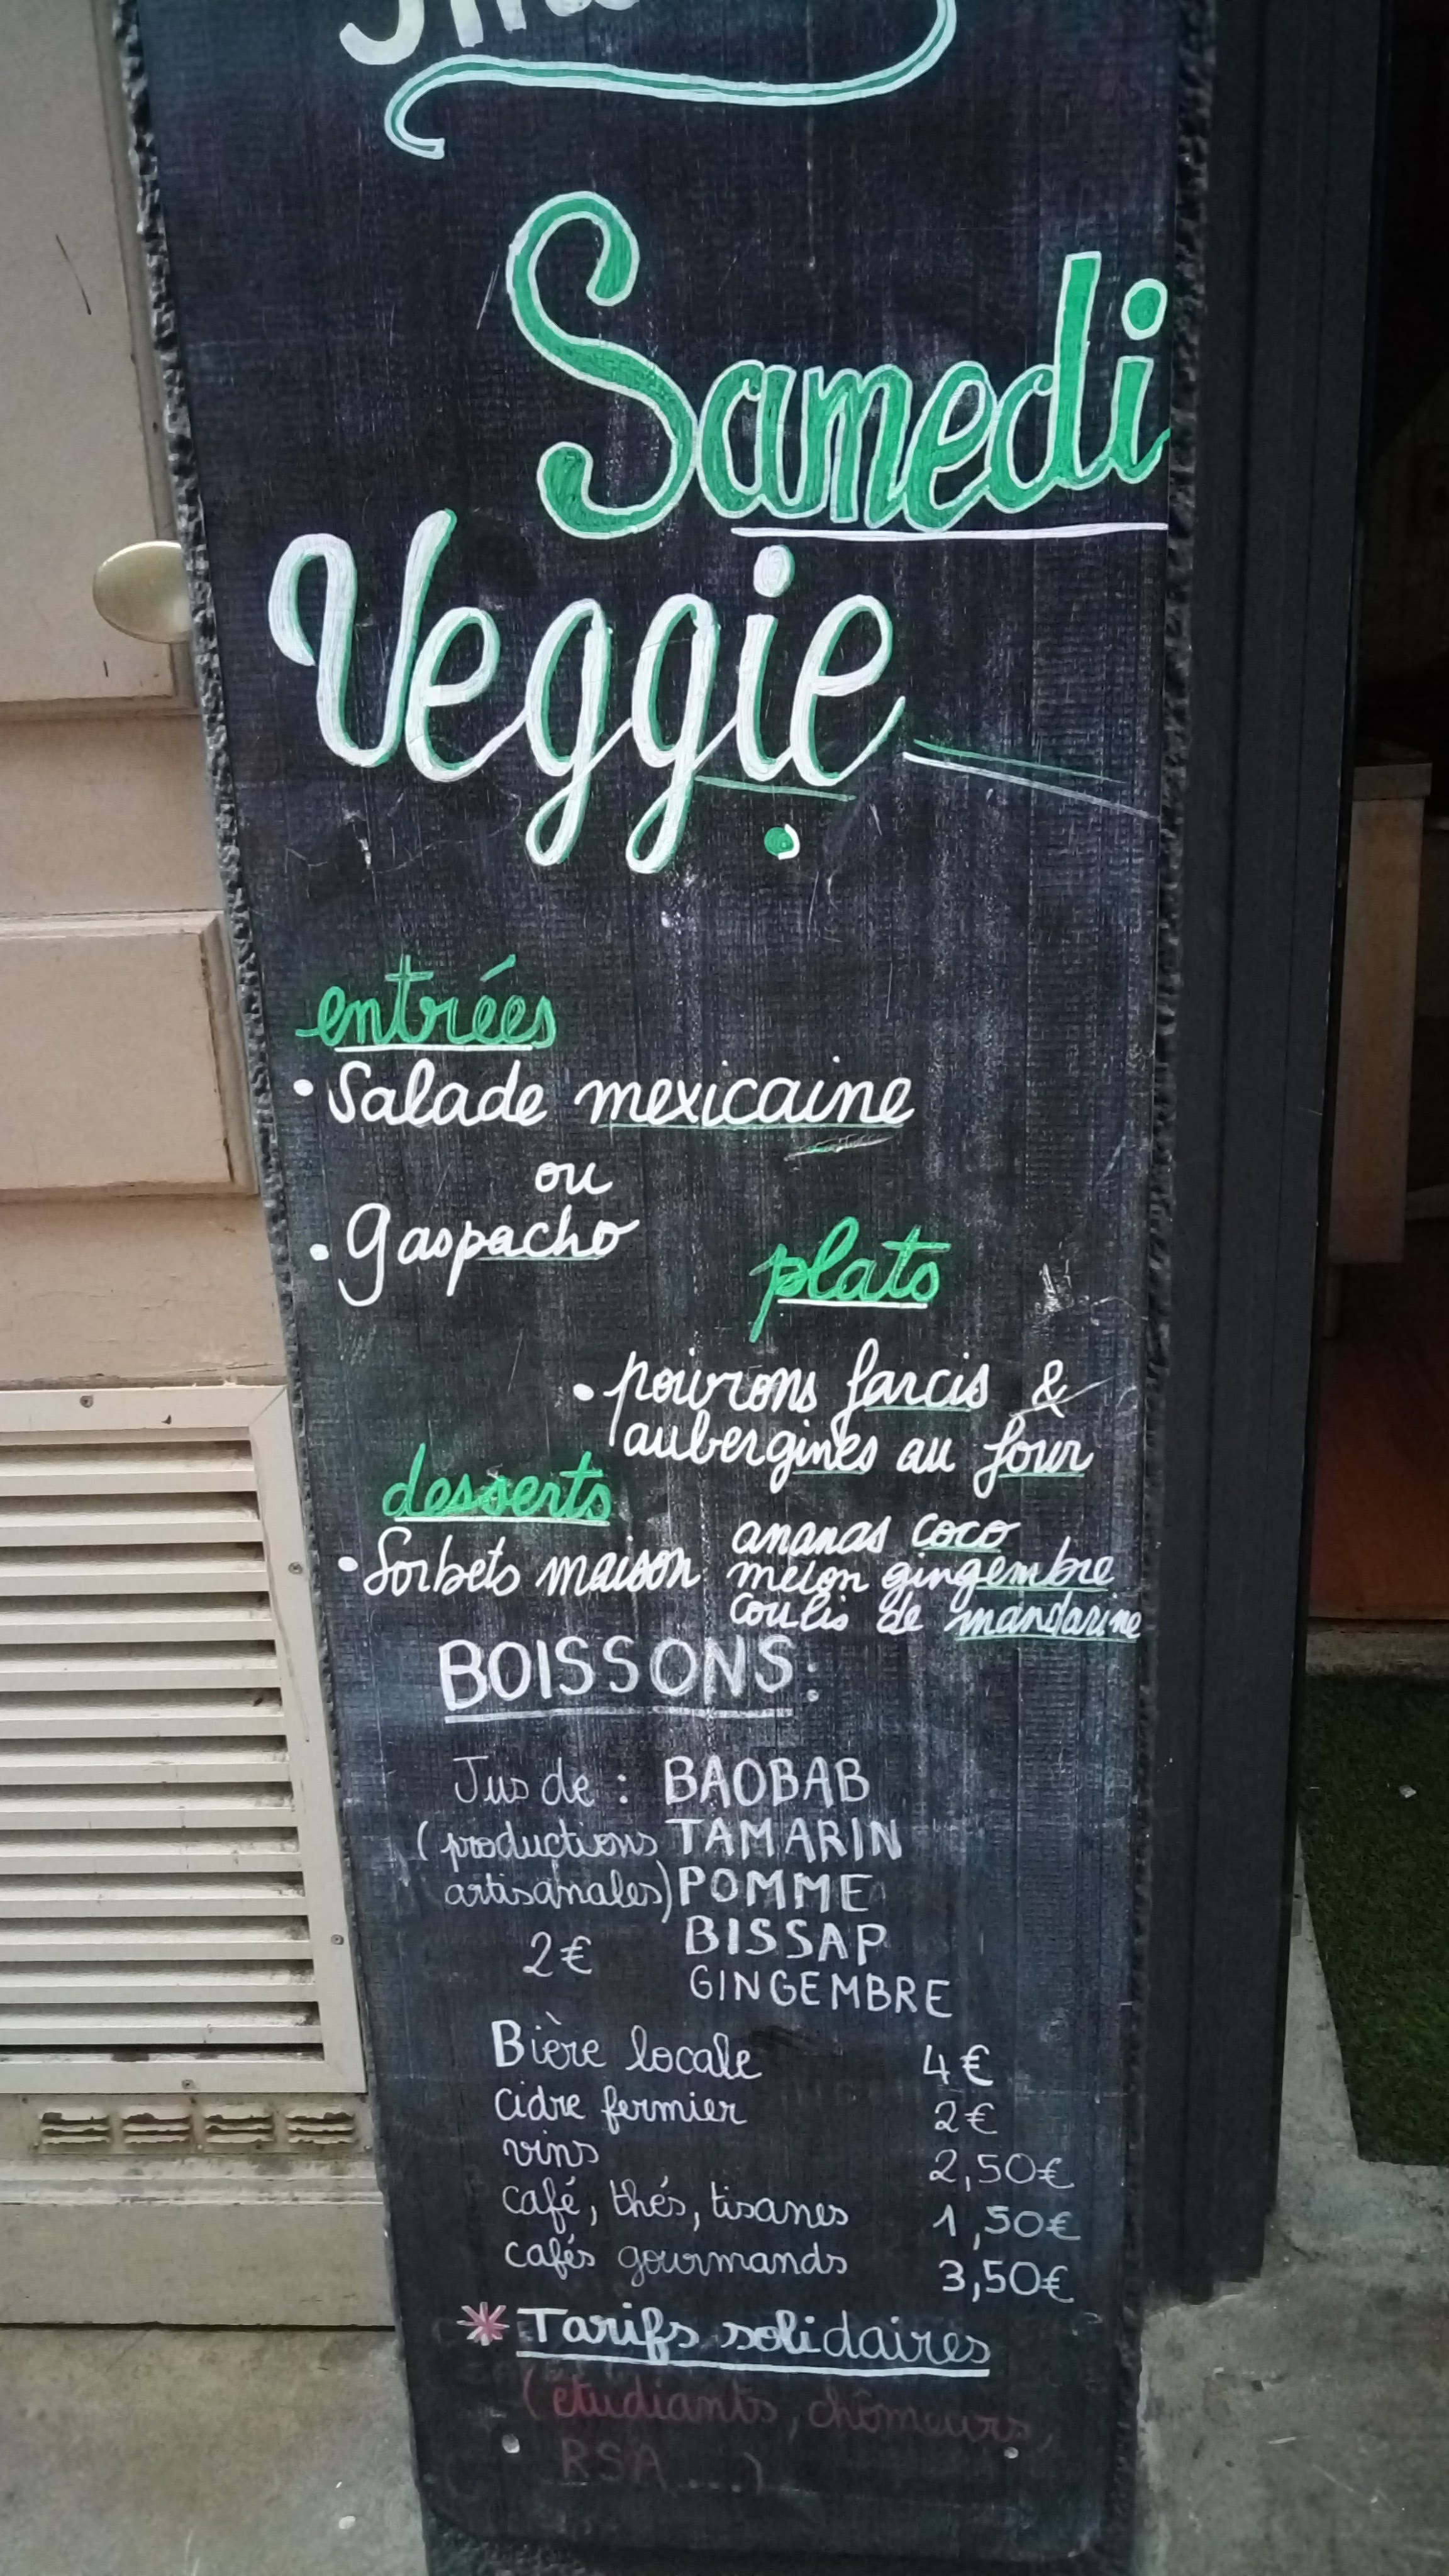 Samedi
Veggie
entrées
• Salade mexicaine
ou
• gaspacho
plats
• poivrons farcis &
aubergines au four
desserts
• Sorbets maison
ananas coco
melon gingembre
coulis de mandarine
BOISSONS:
Jus de : BAOBAB
(productions TAMARIN
artisanales) POMME
2€ BISSAP
GINGEMBRE
Bière locale 4€
cidre fermier 2€
vins 2,50€
café, thés, tisanes 1,50€
cafés gourmands 3,50€
* Tarifs solidaires
(étudiants, chômeurs,
RSA ...)